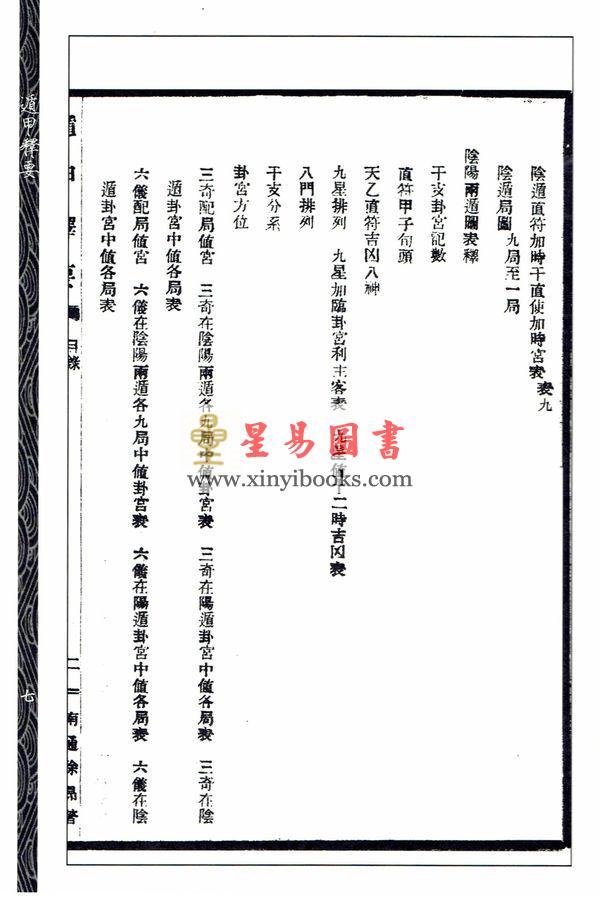 陰遁直符加時干直使加時宮表 表九
陰遁局圖 九局至一局
陰陽兩遁圖表釋
干支卦宮記數
直符甲子旬頭
天乙直符吉凶八神
九星排列 九星加臨卦宮利主客表 九星值十二時吉凶表
八門排列
干支分系
卦宮方位
三奇配局値宮 三奇在陰陽兩遁各九局中値卦宮表 三奇在陽遁卦宮中値各局表 三奇在陰
遁卦宮中値各局表
六儀配局値宮 六儀在陰陽兩遁各九局中値卦宮表 六儀在陽遁卦宮中値各局表 六儀在陰
遁卦宮中値各局表
遁甲釋要 目錄 二 南通徐昂著
遁甲釋要
七
星易圖書
www.xinyibooks.com